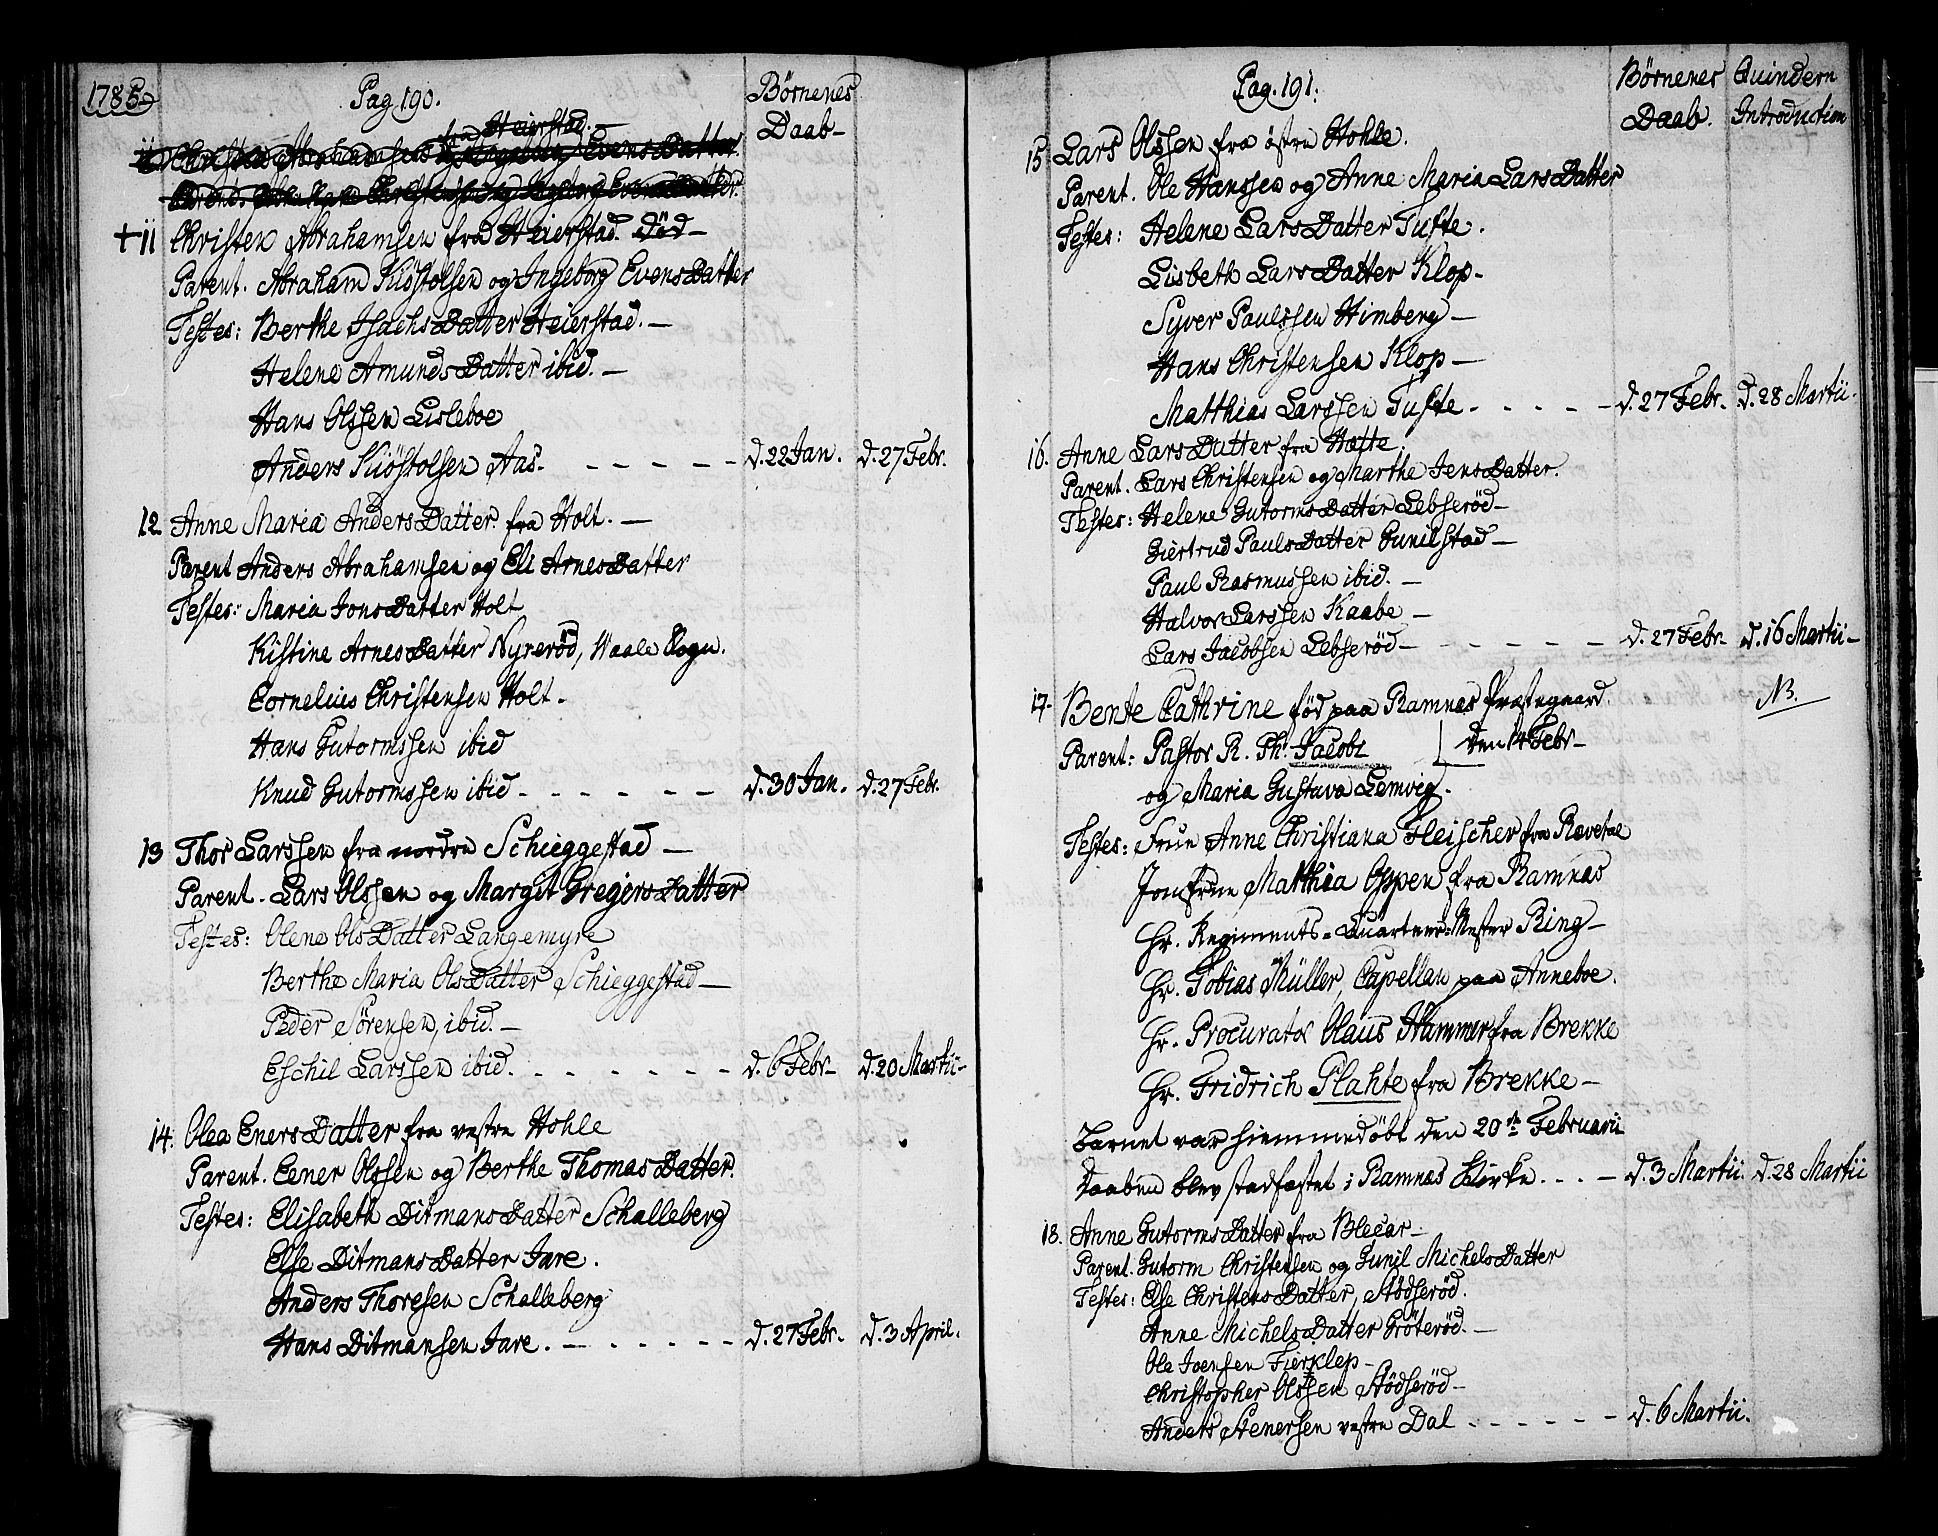 1785
Pag 190.
Børnenes
Daab-
11 Christen Abrahamsen fra Heierstad.-
+11 Christen Abrahamsen fra Heierstad. død-
Parent. Abraham Kiöstolsen og Ingeborg EvensDatter
Testes: Berthe IsachsDatter Heierstad.-
Helene AmundsDatter ibid.-
Hans Olssen Lisleboe
Anders Kiöstolsen Aas. - - - - - d. 22 Jan. d. 27 Febr.
12 Anne Maria AndersDatter fra Holt.-
Parent Anders Abrahamsen og Eli ArnesDatter
Testes: Maria JonsDatter Holt
Kistine ArnesDatter Nyrerød, Waale Sogn.
Cornelius Christensen Holt.
Hans Gutormssen ibid
Knud Gutormssen ibid - - - - - - d. 30 Jan. d. 27 Febr.
13 Thor Larssen fra nordre Schieggestad-
Parent. Lars Olssen og Margit GregersDatter
Testes: Olene OlsDatter Langemyre
Berthe Maria OlsDatter Schieggestad-
Peder Sörensen, ibid.-
Eschil Larssen ibid. - - - - - - - d. 6 Febr- d. 20 Martii-
14. Olea EnersDatter fra vestre Hohle
Parent. Eener Olssen og Berthe ThomasDatter.
Testes: Elisabeth DitmansDatter Schalleberg
Else DitmansDatter Jare.
Anders Thoresen Schalleberg
Hans Ditmansen Jare. - - - - - - d. 27 Febr. d. 3 April.
Pag. 191.
Børnenes Quindern
Daab. Introduction
15 Lars Olssen fra østre Hohle.
Parent. Ole Hanssen og Anne Maria LarsDatter
Testes: Helene LarsDatter Tufte.
Lisbeth LarsDatter Klop-
Syver Paulssen Himberg-
Hans Christensen Klop-
Matthias Larssen Tufte - - - - - d. 27 Febr. d. 28 Martii.
16. Anne LarsDatter fra Hæste.
Parent. Lars Christensen og Marthe JensDatter.
Testes: Helene GutormsDatter Lebserød-
Giertrud PaulsDatter Gunilstad-
Paul Rasmussen ibid.-
Halvor Larssen Kaabe-
Lars Jacobsen Lebserød- - - - - - d. 27 Febr. d. 16 Martii-
17. Bente Cathrine fød paa Ramnæs Præstegaard. NB.
Parent: Pastor R. Ph. Jacobi den 14 Febr-
og Maria Gustava Lemvig.
Testes: Frue Anne Christiana Fleischer fra Revetal
Jomfrue Matthia Oppen fra Ramnæs
Hr. Regiments-Quarteer-Mester Ring-
Hr. Tobias Müller, Capellan paa Anneboe.
Hr. Procurator Olaus Hammer fra Brekke
Hr. Fridrich Plahte fra Brekke-
Barnet var hiemmedøbt den 20de Februarii
Daaben blev stadfæstet i Ramnæs Kirke . . . - d. 3 Martii. d. 28 Martii
18. Anne GutormsDatter fra Blecar-
Parent. Gutorm Christensen og Gunil MichelsDatter
Testes: Else ChristensDatter, Stödserød.
Anne MichelsDatter Gröterød.-
Ole Joensen Fierklep-
Christopher Olssen Stödserød-
Anders Stenersen vestre Dal - - - - - - d. 6 Martii.